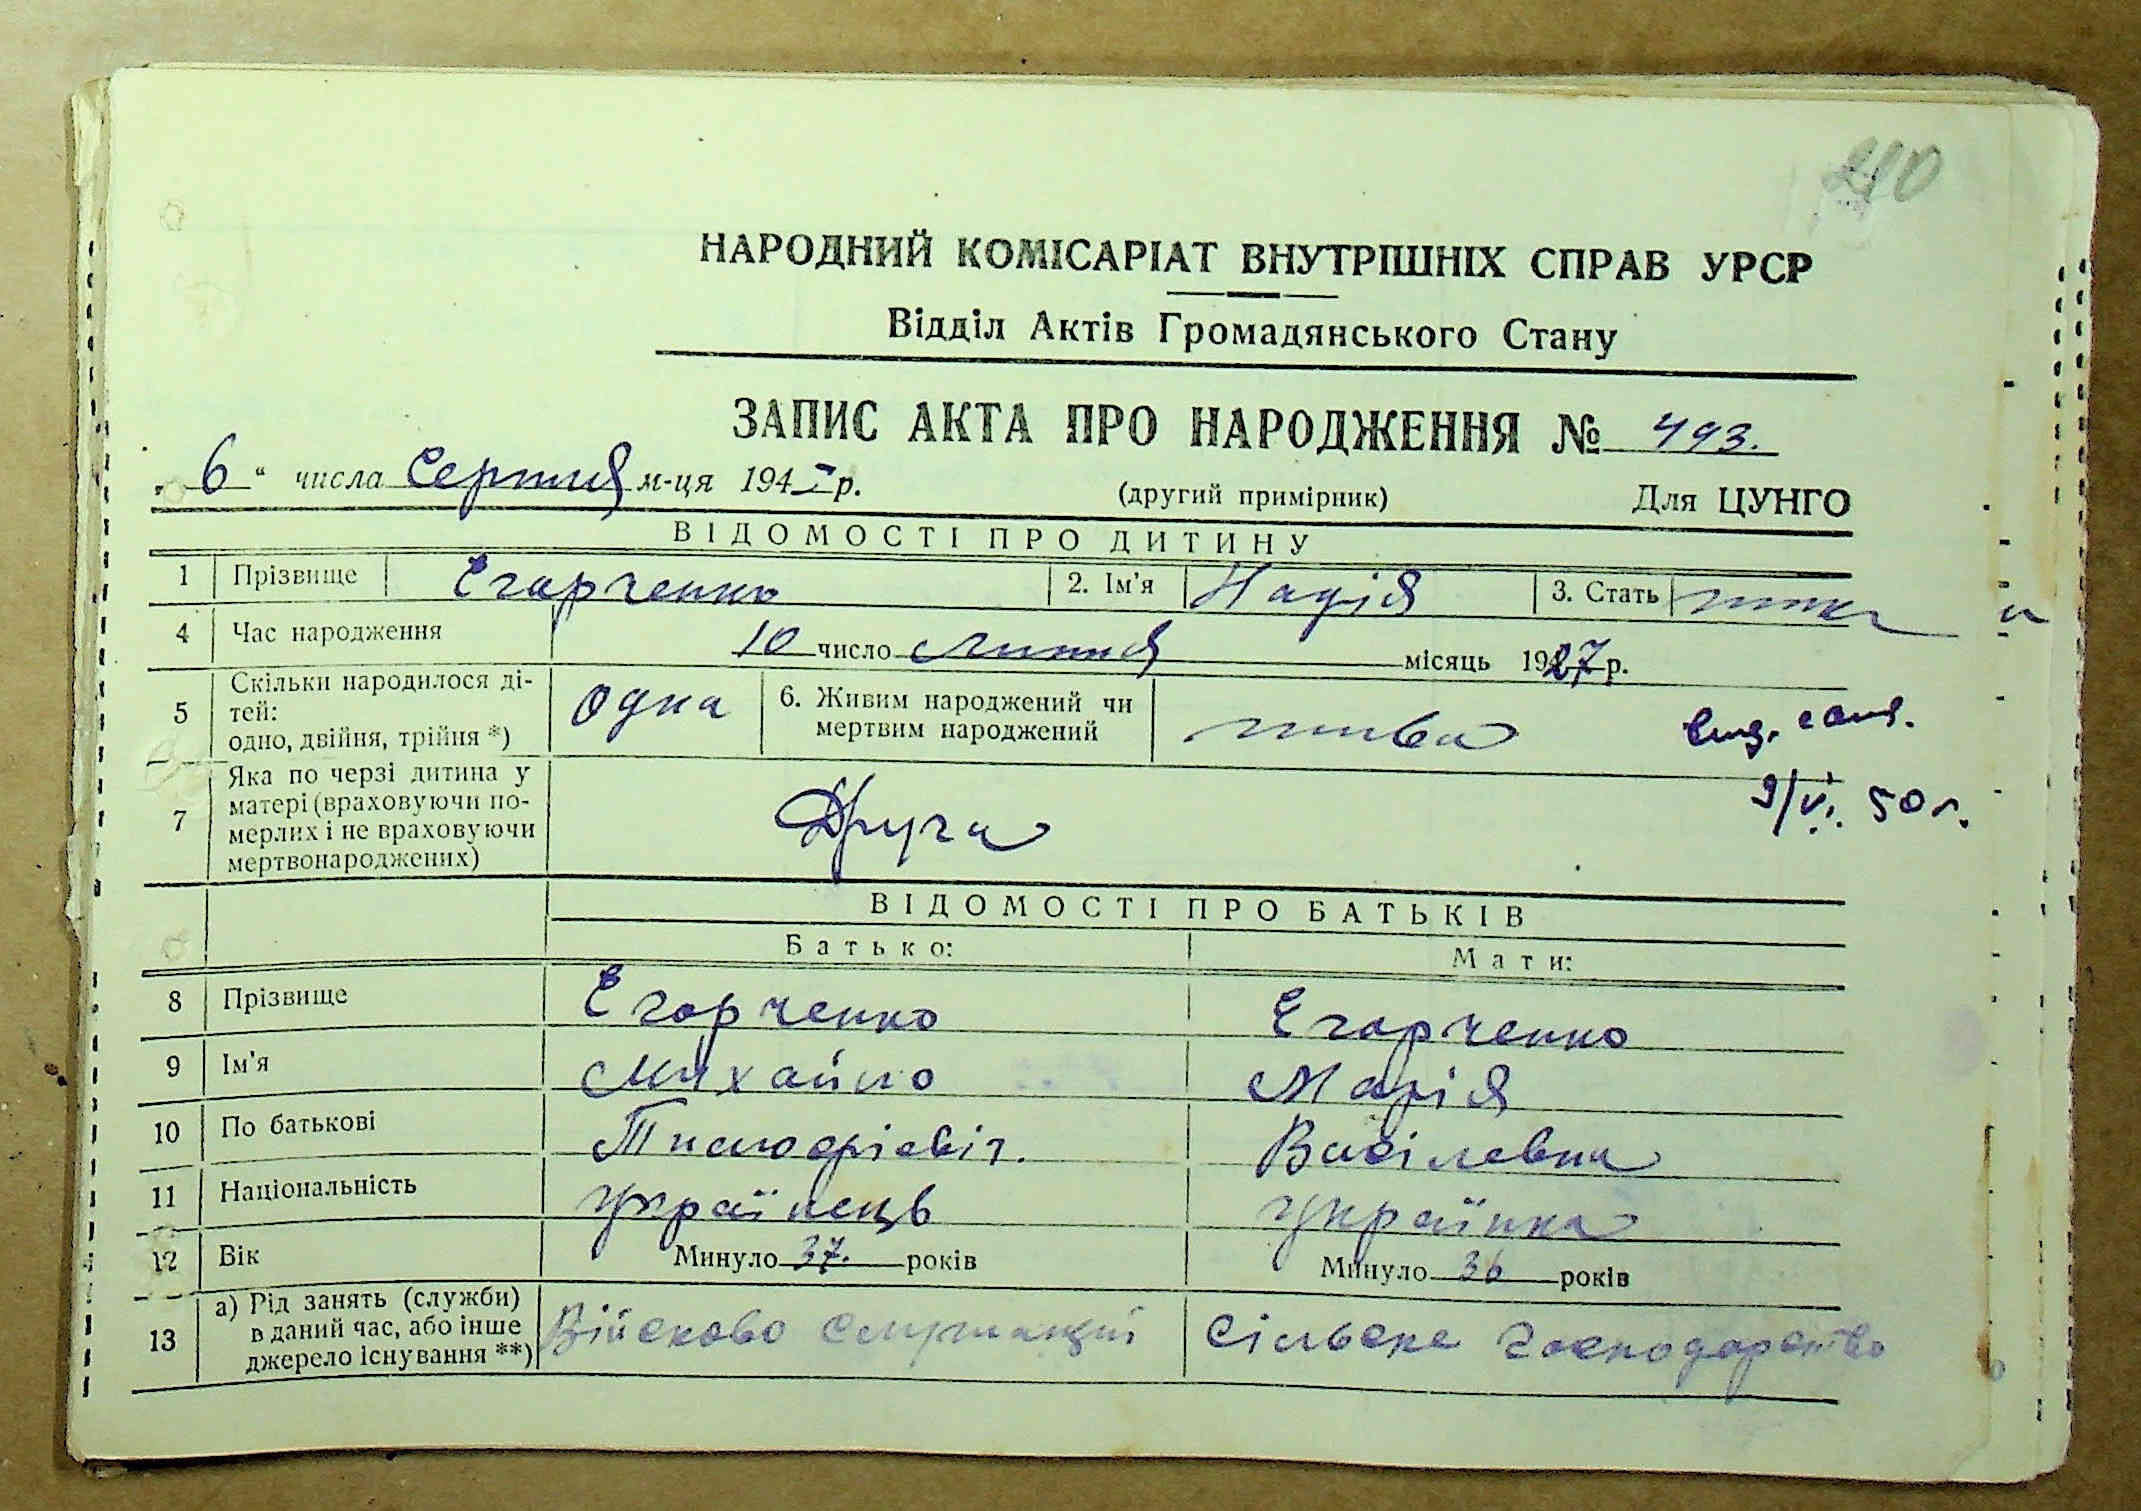 210
НАРОДНИЙ КОМІСАРІАТ ВНУТРІШНІХ СПРАВ УРСР
Відділ Актів Громадянського Стану
ЗАПИС АКТА ПРО НАРОДЖЕННЯ № 493.
„ 6 " числа Серпня м-ця 194 р.
(другий примірник) Для ЦУНГО
ВІДОМОСТІ ПРО ДИТИНУ
1 Прізвище Єгорченко 2. Ім'я Надія 3. Стать жінка
4 Час народження 10 число Липня місяць 1927 р.
5 Скільки народилося ді-
тей:
одно, двійня, трійня *) одна 6. Живим народжений чи
мертвим народжений жива
9/VI. 50 г.
7 Яка по черзі дитина у
матері (враховуючи по-
мерлих і не враховуючи
мертвонароджених) Друга
ВІДОМОСТІ ПРО БАТЬКІВ
Батько: Мати:
8 Прізвище Єгорченко Єгорченко
9 Ім'я Михайло Марія
10 По батькові Василевна
11 Національність українець українка
12 Вік Минуло 37. років Минуло 36 років
13 а) Рід занять (служби)
в даний час, або інше
джерело існування **) Військово служащий Сільске господарство